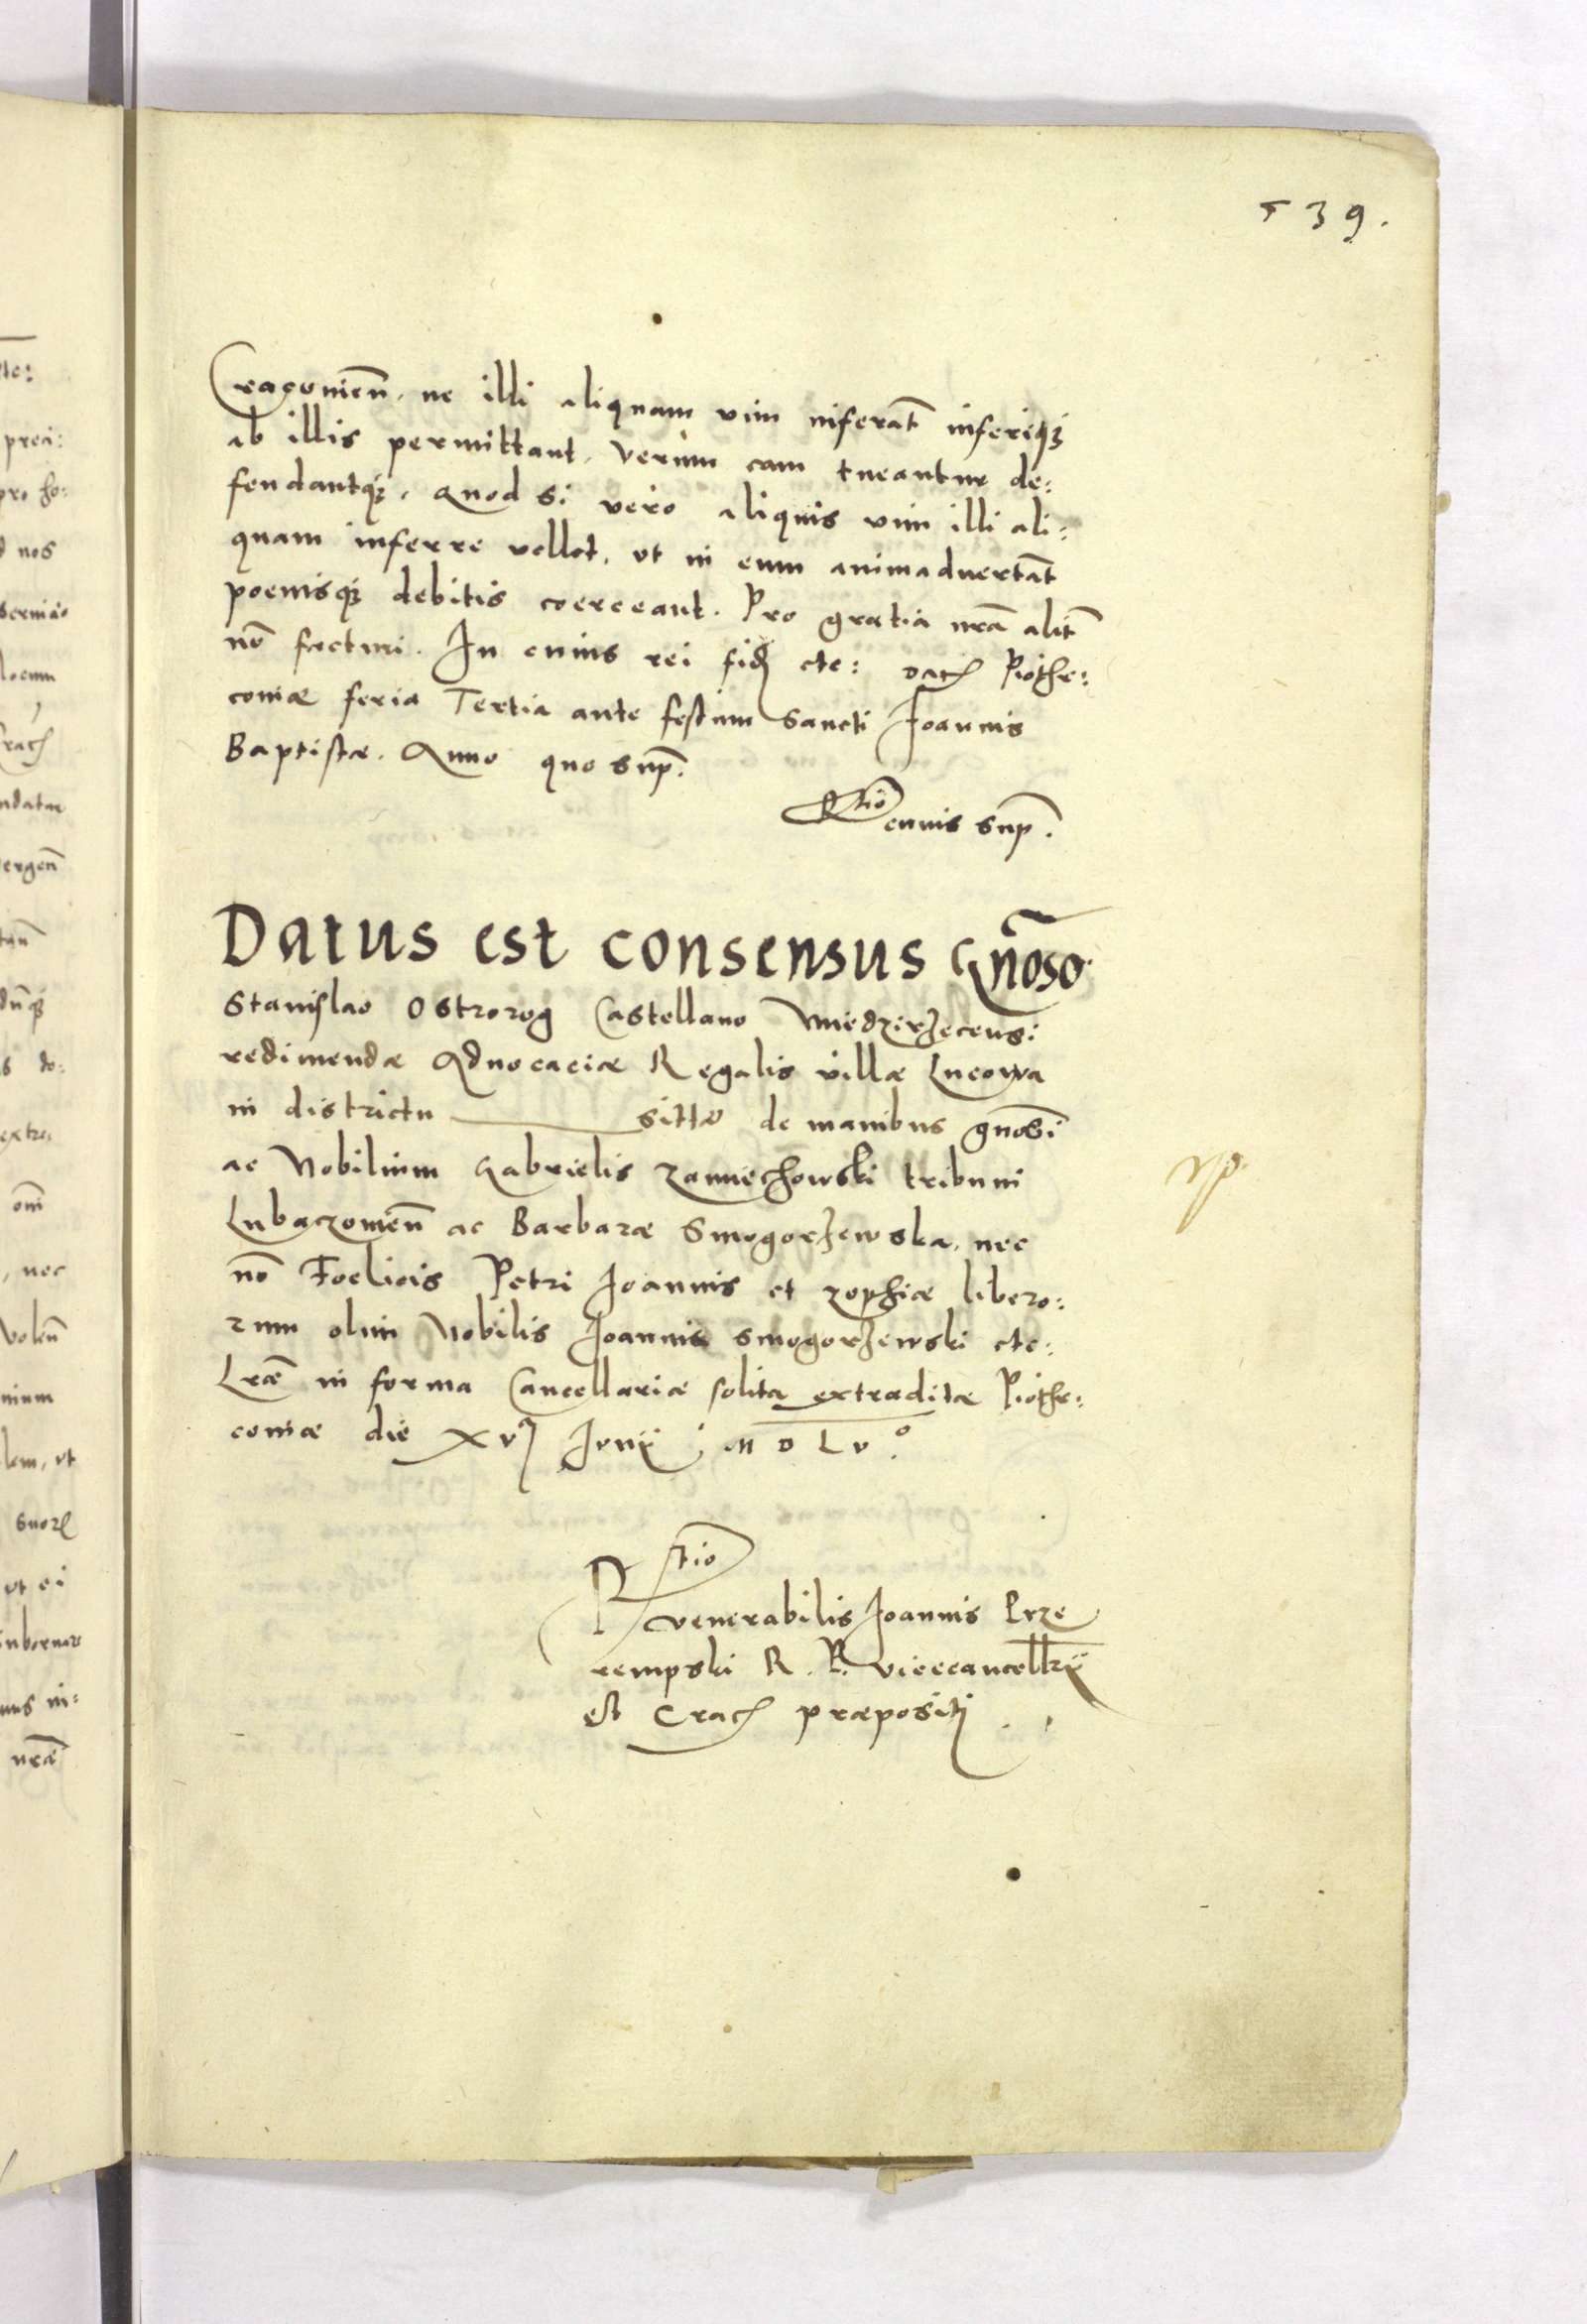 539.
Cracouien̄. ne illi aliquam uim inferāt inferiq;
ab illis permittant. Verum eam tueantur de:
fendantq;. Quod si uero aliquis uim illi ali:
quam inferre vellet, ut in eum animaduertāt
poenisq; debitis coerceant. Pro gratia nrā alit̄
nō facturi. In cuius rei fid etc: Dat Piothr:
couiæ feria Tertia ante festum Sancti Joannis
Baptistæ. Anno quo sup.
Rtio eiuius sup.
Datus est consensus Gn̄oso
Stanislao Ostrorog Castellano Miedzirzecensi
redimendæ Aduocaciæ Regalis villæ Lucowa
in districtu sittæ de manibus gnosi
ac Nobilium Gabrielis Zamiechowski tribuni
Lubaczouien̄ ac Barbaræ Smogorzewska, nec
nō Foelicis Petri Joannis et Zophiæ libero:
rum olim Nobilis Joannis Smogorzewski etc:
Lræ in forma Cancellariæ solita extraditæ Piothr:
couiæ die XVJ Junij MDLV.o
Rtio
venerabilis Joannis Prze
rempski R. P. vicecancellrij
et Crac præpositj